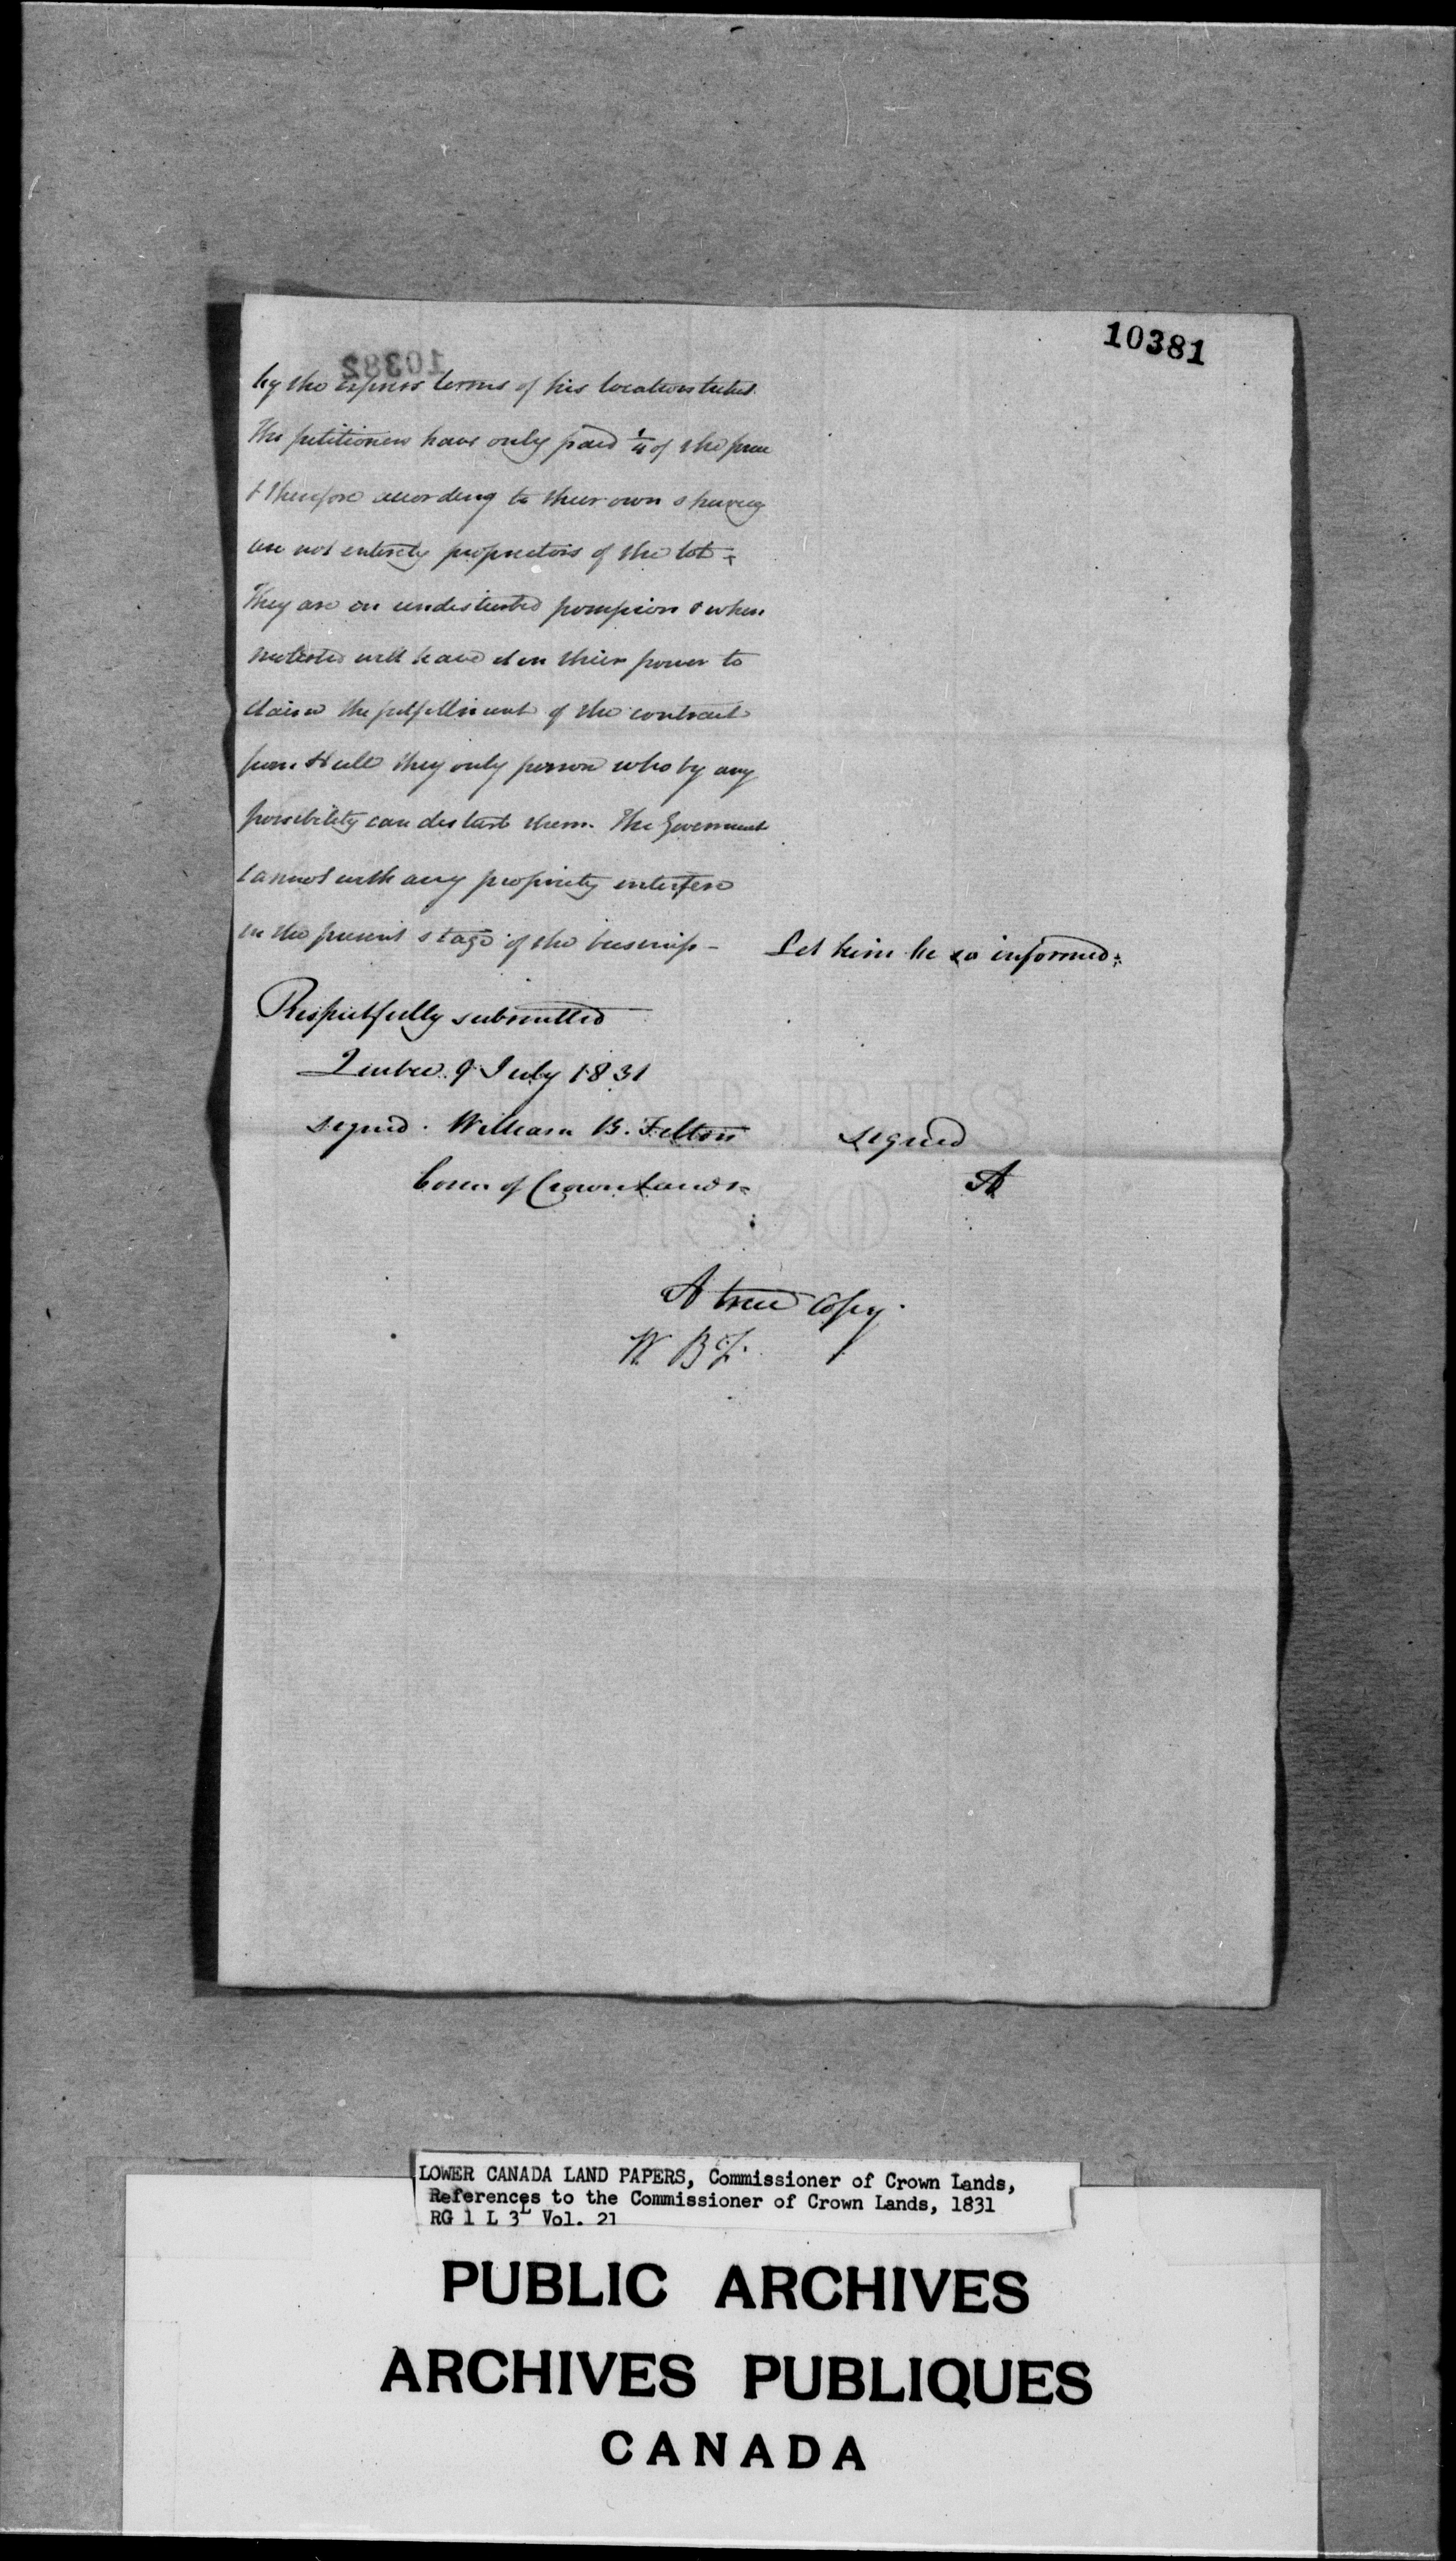 10381
10382
by the express terms of his location ticket.
The petitioners have only paid 1/4 of the price
& therefore according to their own shewing
are not entirely proprietors of the lot -
They are in undisturbed possession & when
molested will have it in their power to
claim the fulfillment of the contract
from Hull they only person who by any
possibility can disturb them. The Government
cannot with any propriety interfere
in the present stage of the business - Let him be so informed.
Respectfully submitted
Quebec 9 July 1831
signed. William B. Felton signed
Comr of Crown Lands. A
A true Copy.
W B F.
LOWER CANADA LAND PAPERS, Commissioner of Crown Lands,
References to the Commissioner of Crown Lands, 1831
RG 1 L 3L Vol. 21
PUBLIC ARCHIVES
ARCHIVES PUBLIQUES
CANADA